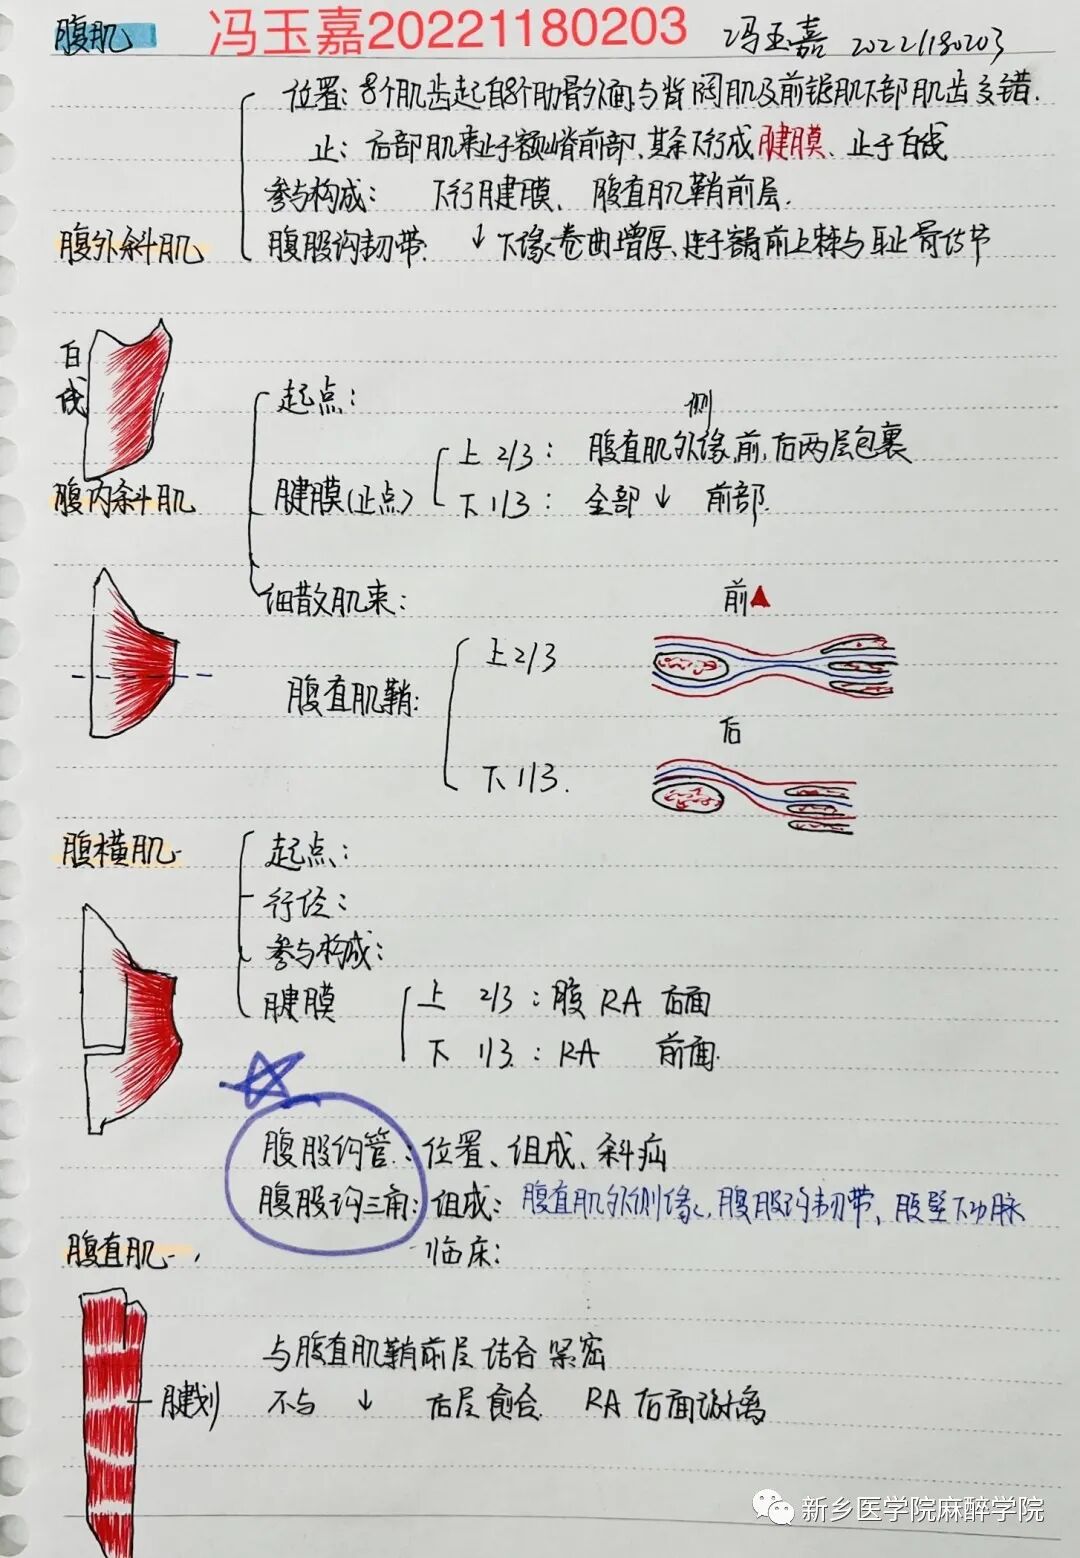 腹肌
冯玉嘉20221180203
冯玉嘉 20221180203
位置: 8个肌齿起自8个肋骨外面与背阔肌及前锯肌下部肌齿交错.
止: 后部肌束止于髂嵴前部,其余下行成腱膜、止于白线
参与构成: 下行腱膜、腹直肌鞘前层.
腹外斜肌
腹股沟韧带: ↓ 下缘卷曲增厚,连于髂前上棘与耻骨结节
白线
起点:
侧
上 2/3: 腹直肌外缘,前,后两层包裹
腹内斜肌
腱膜(止点)
下 1/3: 全部 ↓ 前部.
细散肌束:
前▲
上2/3
腹直肌鞘:
后
下 1/3.
腹横肌
起点:
行径:
参与构成:
腱膜
上 2/3: 腹 RA 后面
下 1/3: RA 前面.
腹股沟管: 位置、组成、斜疝
腹股沟三角: 组成: 腹直肌外侧缘、腹股沟韧带、腹壁下动脉
腹直肌
临床:
与腹直肌鞘前层结合紧密
腱划
不与 ↓ 后层愈合. RA 后面游离
新乡医学院麻醉学院